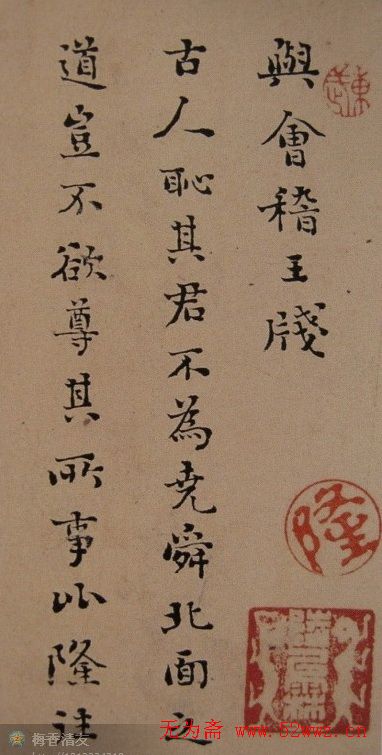 與會稽王牋
古人恥其君不為堯舜北面之
道豈不欲尊其所事比隆往
隆
梅香清友
无为斋 www.52wwz.cn